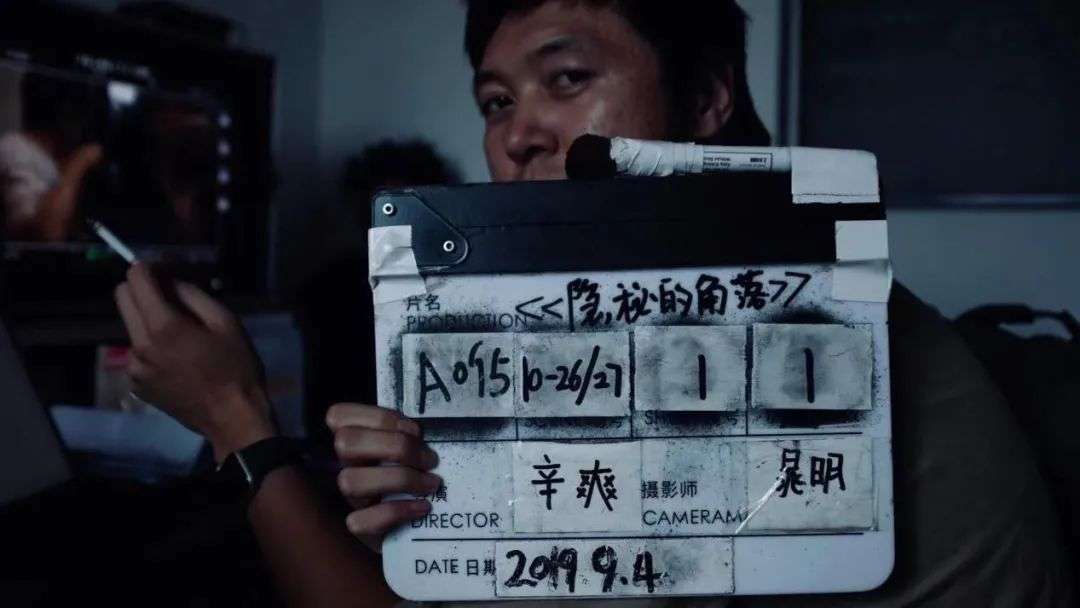 片名 <<隐秘的角落>>
PRODUCTION
A095 10-26/27 1 1
导演 辛爽 摄影师 晁明
DIRECTOR CAMERAM
DATE 日期 2019 9.4